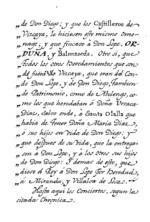 de Don Diego; y que los Castilleros de
Vizcaya, le hiciesen este mismo omenage; y que fincase a Don Lope, OR-
DUÑA, y Balmaseda. Otro sí, que
todos los otros heredamientos que
Vizcaya, que eran del Conde Don Lope, y de Don Diego,
Patrimonio, como de Abolengo,
los que heredaban a Doña Urraca
Diaz, salvo ende, à Santa Olalla que
había de tener Doña Maria Diaz,
ò sus hijos en vida de Don Diego; y
que despues de su vida, que la entregasen
à Don Lope, y à los otros sus hijos
de Don Diego: Y demas de esto, que
diera el Rey à Don Lope por heredad,
à Miranda, y Villalva de Losa.
Hasta aqui los Conciertos, segun la
citada Coronica.